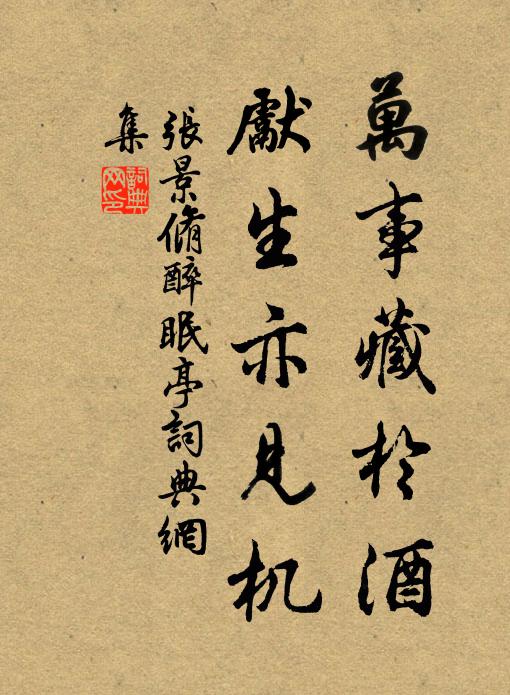 萬事藏於酒
獻生亦見机
張景脩醉眠亭詞典網
集
詞典網印